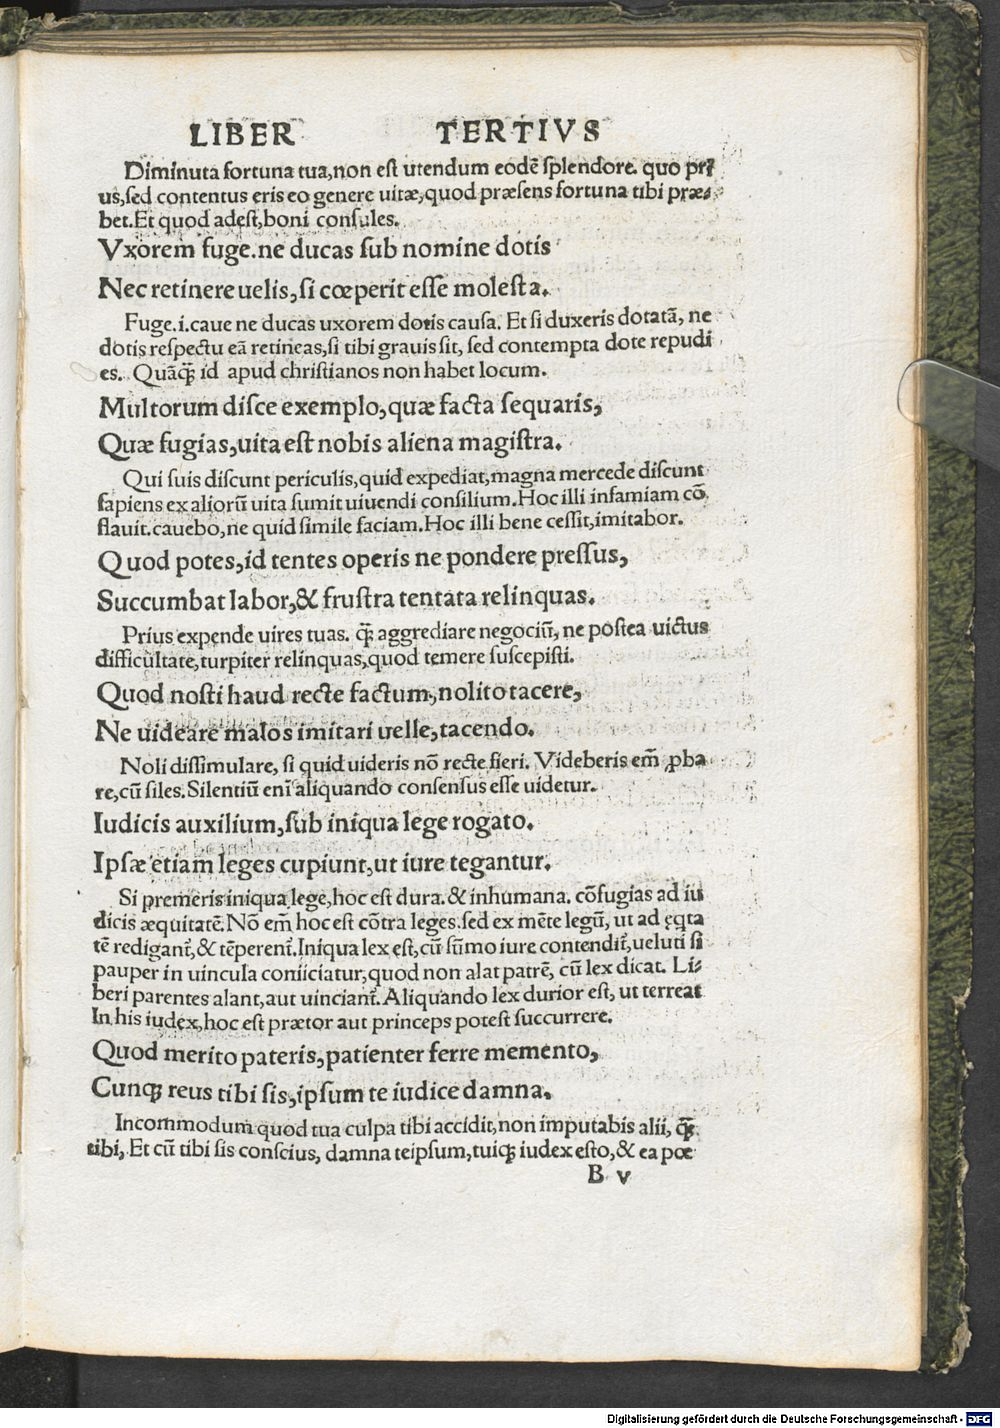 LIBER TERTIVS
Diminuta fortuna tua,non est utendum eodē splendore. quo pri
us,sed contentus eris eo genere uitæ,quod præsens fortuna tibi præ⸗
bet.Et quod adest,boni consules.
Vxorem fuge.ne ducas sub nomine dotis
Nec retinere uelis,si cœperit esse molesta.
Fuge.i.caue ne ducas uxorem dotis causa. Et si duxeris dotatā, ne
dotis respectu eā retineas,si tibi grauis sit, sed contempta dote repudi
es. Quāꝗ̄ id apud christianos non habet locum.
Multorum disce exemplo,quæ facta sequaris,
Quæ fugias,uita est nobis aliena magistra.
Qui suis discunt periculis,quid expediat,magna mercede discunt
sapiens ex aliorū uita sumit uiuendi consilium.Hoc illi infamiam cō
flauit.cauebo,ne quid simile faciam.Hoc illi bene cessit,imitabor.
Quod potes,id tentes operis ne pondere pressus,
Succumbat labor,& frustra tentata relinquas.
Prius expende uires tuas. ꝗ̄ aggrediare negociū, ne postea uictus
difficultate,turpiter relinquas,quod temere suscepisti.
Quod nosti haud recte factum,nolito tacere,
Ne uideare malos imitari uelle,tacendo.
Noli dissimulare, si quid uideris nō recte fieri. Videberis em̄ ꝓba
re,cū siles.Silentiū enī aliquando consensus esse uidetur.
Iudicis auxilium,sub iniqua lege rogato.
Ipsæ etiam leges cupiunt,ut iure tegantur.
Si premeris iniqua lege,hoc est dura.& inhumana. cōfugias ad iu
dicis æquitatē.Nō em̄ hoc est cōtra leges.sed ex mēte legū, ut ad ęqta
tē redigant̄,& tēperent̄.Iniqua lex est,cū sūmo iure contendit̄,ueluti si
pauper in uincula coniiciatur,quod non alat patrē, cū lex dicat. Li⸗
beri parentes alant,aut uinciant̄.Aliquando lex durior est, ut terreat
In his iudex,hoc est prætor aut princeps potest succurrere.
Quod merito pateris,patienter ferre memento,
Cunqꝫ reus tibi sis,ipsum te iudice damna.
Incommodum quod tua culpa tibi accidit,non imputabis alii, ꝗ̄
tibi, Et cū tibi sis conscius, damna teipsum,tuiqꝫ iudex esto,& ea pœ
B v
Digitalisierung gefördert durch die Deutsche Forschungsgemeinschaft - DFG